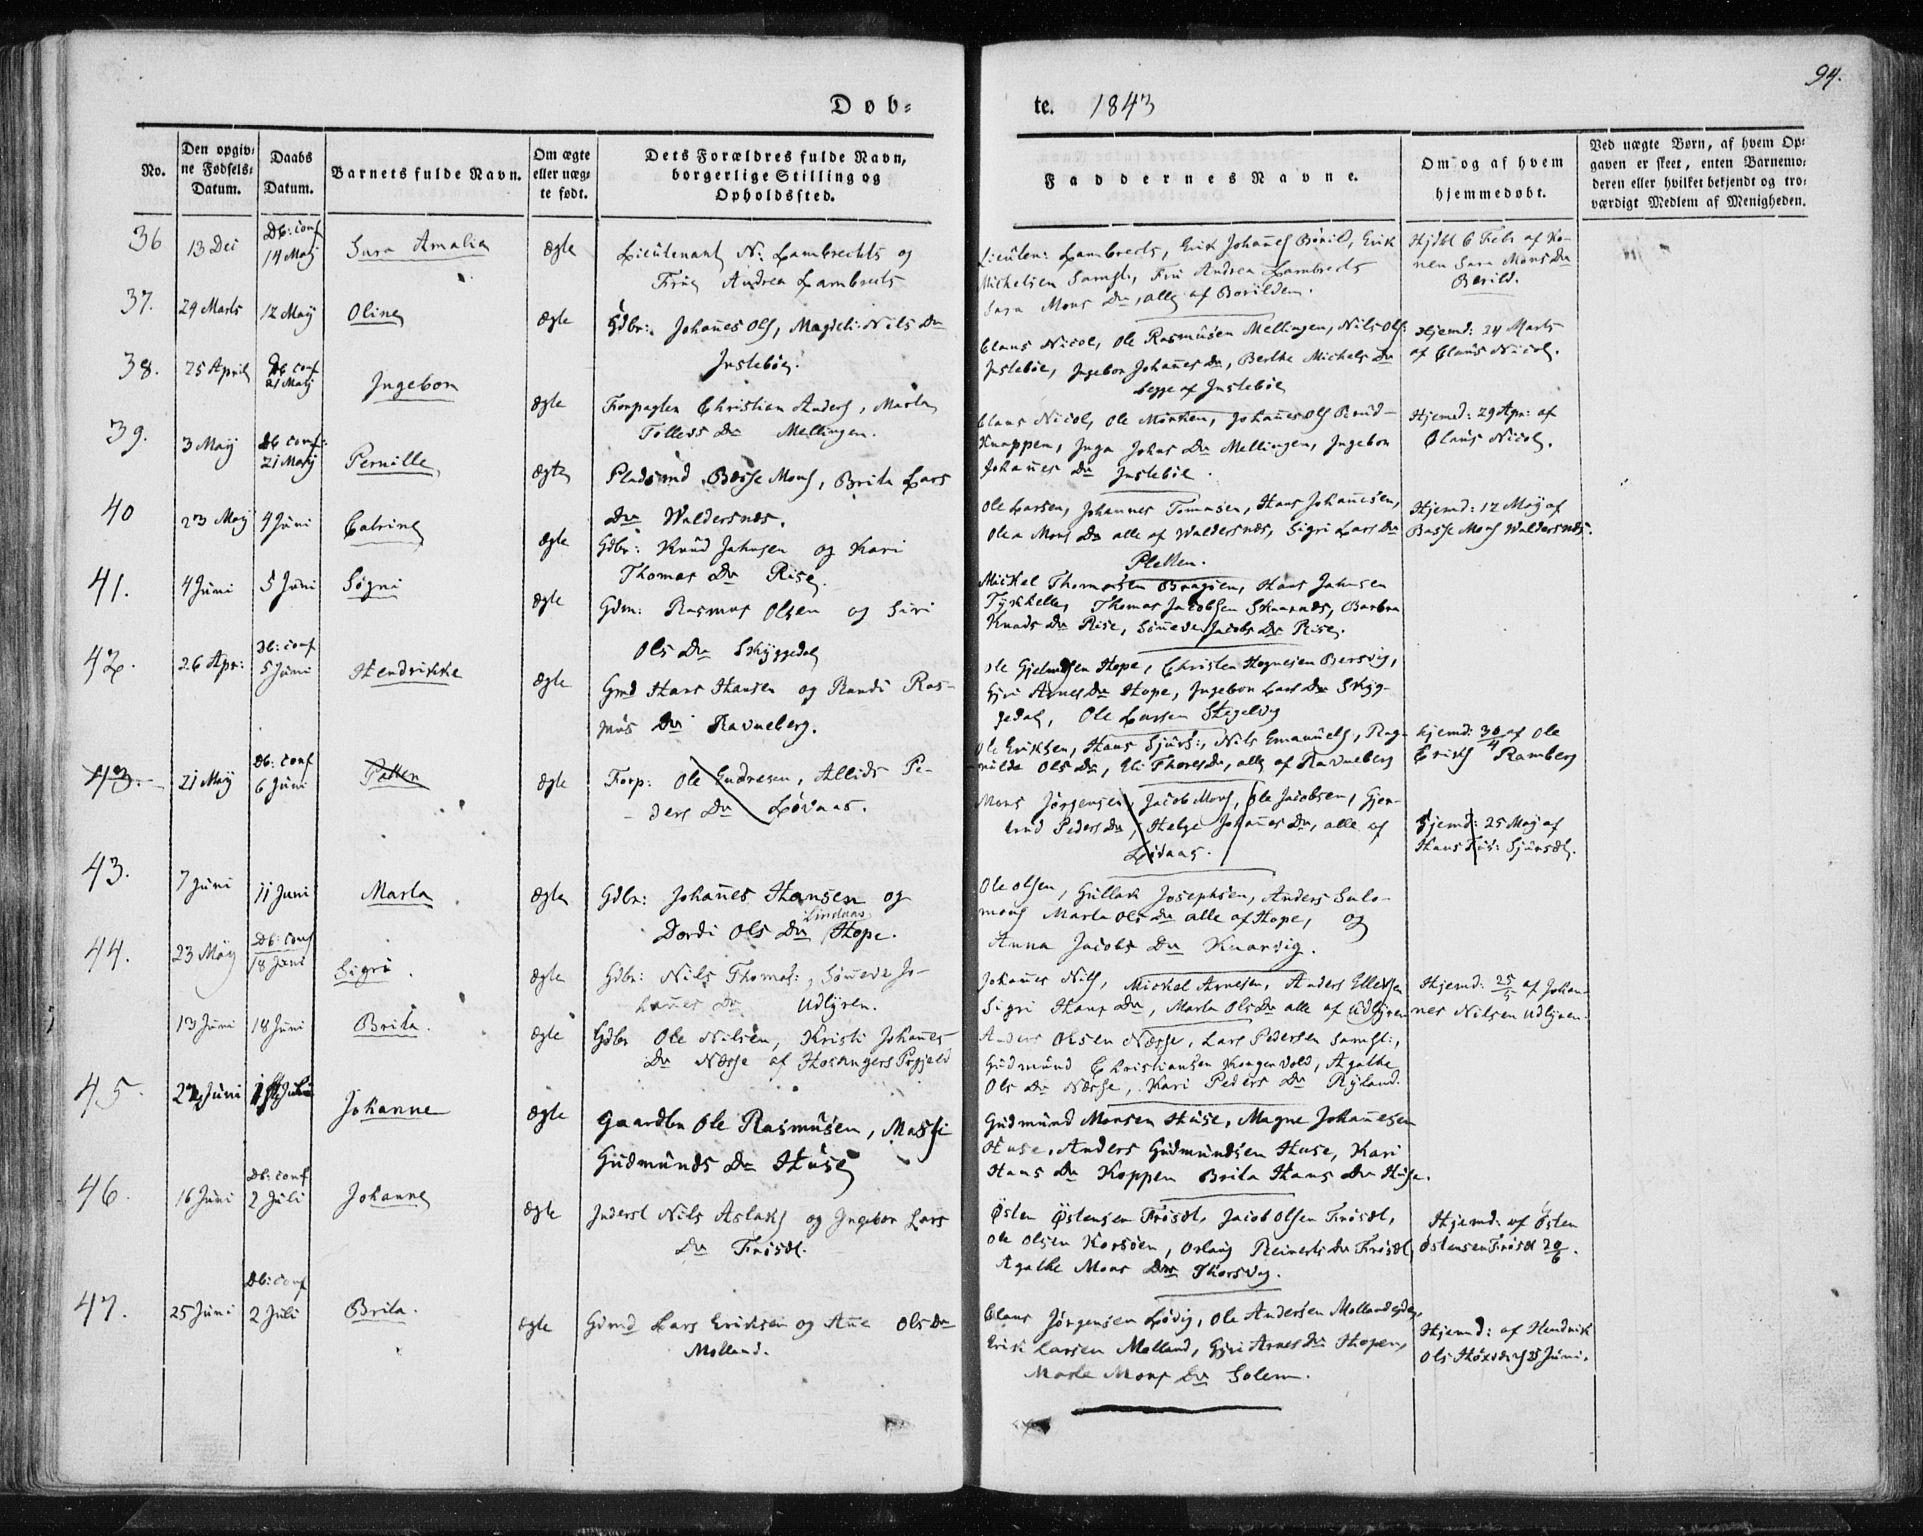 94.
Døb-
te. 1843
No.
Den opgiv-
ne Fødsels-
Datum.
Daabs
Datum.
Barnets fulde Navn.
Om ægte
eller uæg-
te født.
Dets Forældres fulde Navn,
borgerlige Stilling og
Opholdssted.
Faddernes Navne.
Om og af hvem
hjemmedøbt.
Ved uægte Børn, af hvem Op-
gaven er skeet, enten Barnemo-
deren eller hvilket bekjendt og tro-
værdigt Medlem af Menigheden.
36
13 Dec
Db: conf
14 Maij
Sara Amalia
ægte
Lieutenant N: Lambrechts og
Frue Andrea Lambrects
Lieuten: Lambrects, Erik Johanes Börild, Erik
Michelsen Samst., Fru Andrea Lambrects
Sara Mons Dr, alle af Borilden.
Hjdbt 6 Febr af Ko-
nen Sara Mons Dr
Börild.
37.
29 Marts
12 Maij
Oline
ægte
Gdbr: Johanes Ols, Magdeli: Nils Dr
Insteböe.
Claus Nicol, Ole Rasmusen Mellingen, Nils Ols:
Insteböe, Ingebor Johanes Dr, Berthe Michels Dr
begge af Insteböe
Hjemd: 24 Marts
af Claus Nicol.
38.
25 April
Db conf
21 Maij
Ingebor
ægte
Forpagter Christian Anders, Marta
Tollevs Dr Mellingen.
Claus Nicol, Ole Mörken, Johanes Ols Brud-
Knappen, Inga Johns Dr Mellingen, Ingebor
Johanes Dr Insteböe.
Hjemd: 29 Apr: af
Claus Nicol.
39.
3 Maij
Db conf:
21 Maij
Pernille
ægte
Pladsmd Basse Mons, Brita Lars
Dr Waldersnæs.
Ole Larsen, Johannes Tomasen, Hans Johanesen,
Olea Mons Dr alle af Waldersnæs, Sigri Lars Dr
Pletten.
Hjemd: 12 Maij af
Basse Mons Waldersnæs.
40
23 Maij
4 Juni
Catrine
ægte
Gdbr: Knud Jahnsen og Kari
Thomas Dr Rise.
Mickel Thomasen Bragien, Hans Jahnsen
Tyskhelle, Thomas Jacobsen Skuarnæs, Barbra
Knuds Dr Rise, Sömeve Jacobs Dr Rise.
41.
4 Juni
5 Juni
Sögni
ægte
Gdm: Rasmus Olsen og Siri
Ols Dr Skyggedal
Ole Gjelmsen Hope, Christen Hognesen Bersvig,
Gjri Arnes Dr Hope, Ingebor Lars Dr Skyg-
gedal, Ole Larsen Stegelvig
42.
26 Apr:
Db: conf
5 Juni
Hendrikke
ægte
Gmd Hans Hansen og Randi Ras-
mus Dr Ravneberg.
Ole Eriksen, Hans Sjurs:, Nils Emanuels, Rag-
nilde Ols Dr, Eli Thores Dr, alle af Ravneberg
hjemd: 30/4 af Ole
Eriks Ramberg
43.
21 Maij
Db: conf
6 Juni
Petter
ægte
Forp: Ole Endresen, Allids Pe-
ders Dr Lövaas.
Mons Jörgensen, Jacob Mons, Ole Jacobsen, Gjer-
trud Peders Dr, Helge Johanes Dr, alle af
Lövaas.
Hjemd: 25 Maij af
Hans Sjursdt.
43.
7 Juni
11 Juni
Marta
ægte
Gdbr: Johanes Hansen og
Dordi Ols Dr Hope.
Lindaas
Ole Olsen, Gullak Josephsen, Anders Salo-
mons Marta Ols Dr alle af Hope, og
Anna Jacobs Dr Knarvig.
44.
23 Maij
Db: conf
18 Juni
Sigri.
ægte
Gdbr: Nils Thomas:, Sömeve Jo-
hanes Dr Udlyren.
Johanes Nils, Mickel Arnesen, Anders Ellevsen
Sigri Hans Dr, Marta Ols Dr alle af Udlyren
Hjemd: 25/5 af Johan-
nes Nilsen Udlyren.
13 Juni
18 Juni
Brita.
ægte
Gdbr Ole Nilsen, Kristi Johanes
Dr Næsse af Hosangers Prgjeld
Anders Olsen Næsse, Lars Pedersen Samst:,
Gudmund Christiansen Kongsvold, Agathe
Ols Dr Næsse, Kari Peders Dr Ryland.
45.
Juni
Juli
Johanne
ægte
Gaardbr Ole Rasmusen, Massi
Gudmunds Dr Huse
Gudmund Monsen Huse, Magne Johanesen
Huse, Anders Gudmundsen Huse, Kari
Hans Dr Koppen Brita Hans Dr Huse.
46.
16 Juni
Db: conf
2 Juli
Johanne
ægte
Inderst Nils Aslaks og Ingebor Lars
Dr Frösdt.
Östen Östensen Frösdt, Jacob Olsen Frösdt,
Ole Olsen Korsöen, Orlaug Reinerts Dr Frösdt,
Agathe Mons Dr Thorsvig.
Hjemd: af Östen
Östensen Frösdt 20/6.
47.
25 Juni
Db: conf
2 Juli
Brita.
ægte
Gdmd Lars Eriksen og Ane Ols Dr
Molland.
Claus Jörgensen Lödig, Ole Andersen Mollandseje,
Erik Larsen Molland, Gjri Arnes Dr Hopen,
Marte Mons Dr Solem.
Hjemd: af Hendrik
Ols 25 Juni.